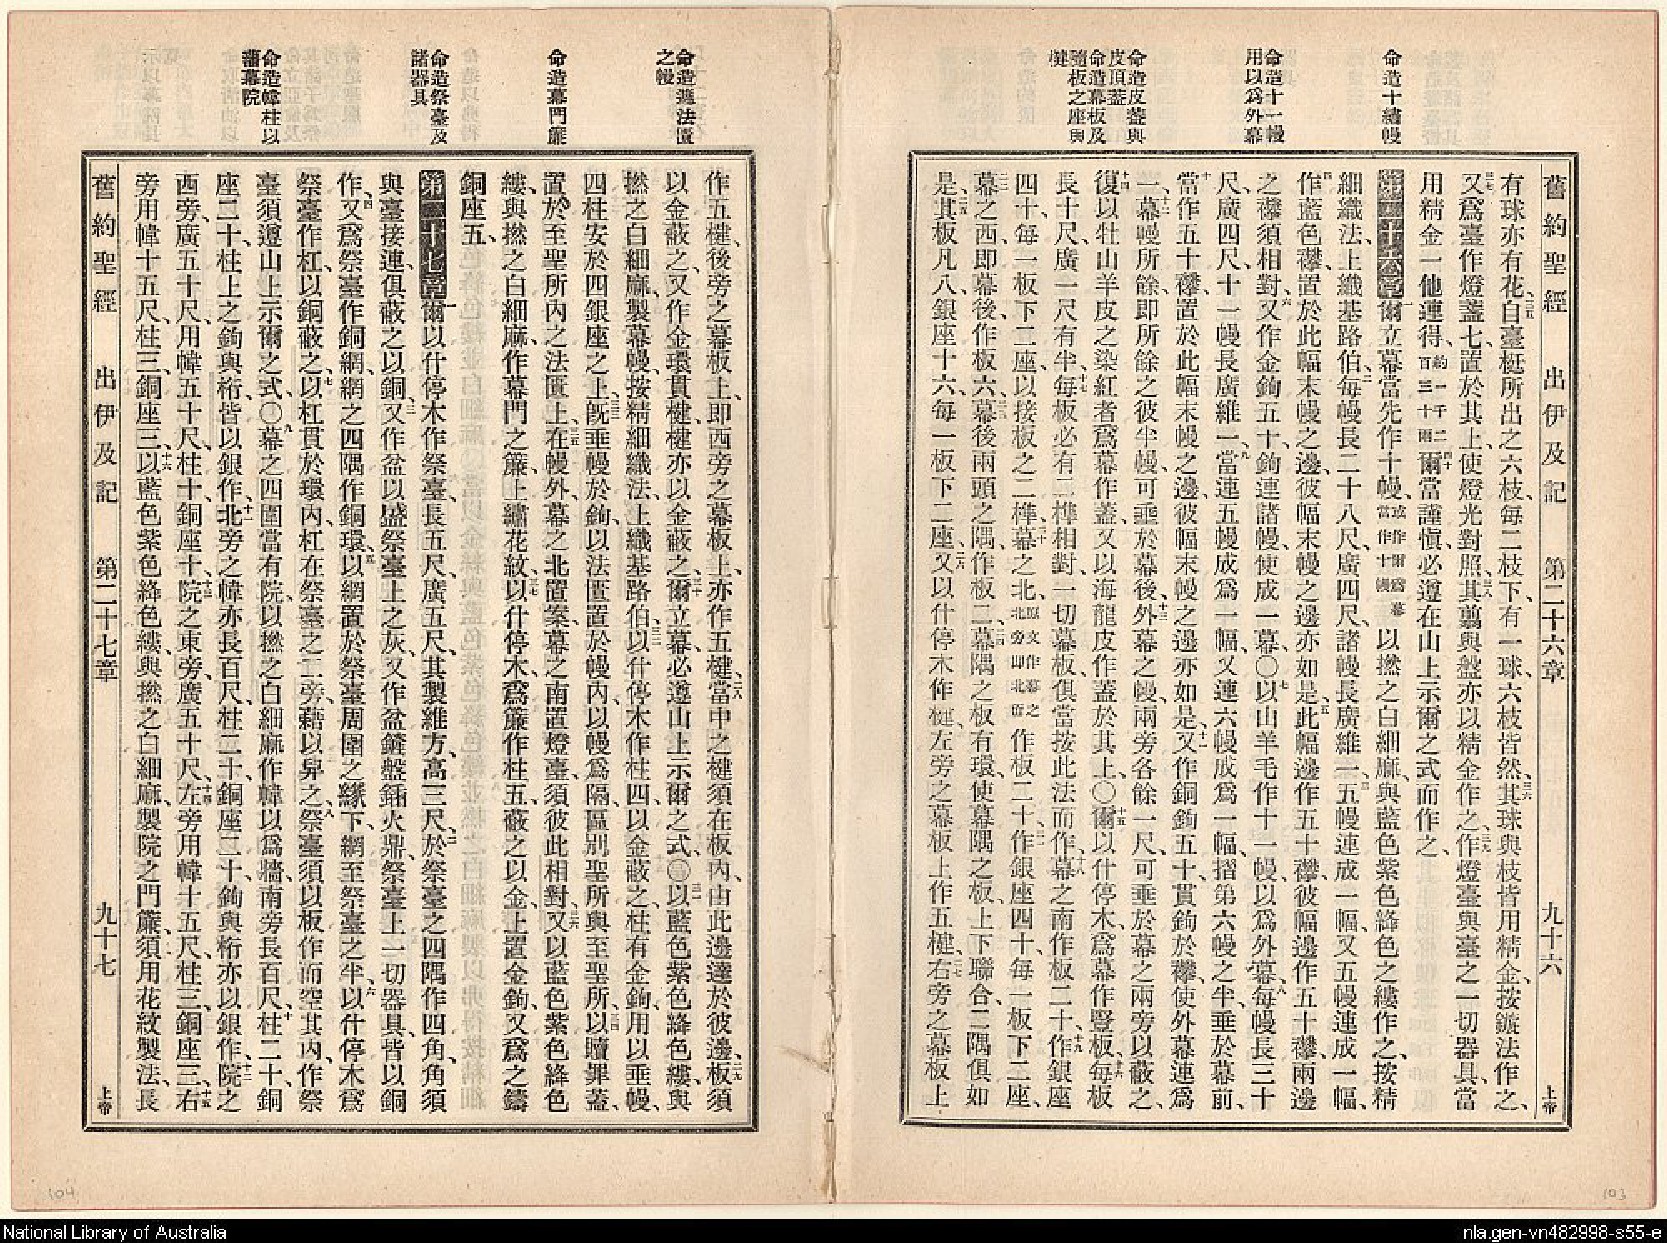 命造十繡幔
命造十一幔
用以爲外幕
命造皮蓋與
皮頂蓋
命造幕板及
隨板之座與
楗
舊約聖經 出伊及記 第二十六章 九十六 上帝
有球亦有花、三五自臺梃所出之六枝、每二枝下有一球、六枝皆然、三六其球與枝皆用精金、按鏇法作之、
三七又爲臺作燈盞七、置於其上、使燈光對照、三八其翦與盤亦以精金作之、三九作燈臺與臺之一切器具、當
用精金一他連得、約一千二百三十兩四十爾當謹愼、必遵在山上示爾之式而作之、
第二十六章 一爾立幕、當先作十幔、或作爾爲幕當作十幔以撚之白細麻、與藍色紫色絳色之縷作之、按精
細織法、上織基路伯、二每幔長二十八尺、廣四尺、諸幔長廣維一、三五幔連成一幅、又五幔連成一幅、
四作藍色襻、置於此幅末幔之邊、彼幅末幔之邊亦如是、五此幅邊作五十襻、彼幅邊作五十襻、兩邊
之襻須相對、六又作金鉤五十、鉤連諸幔、使成一幕、〇七以山羊毛作十一幔、以爲外幕、八每幔長三十
尺、廣四尺、十一幔長廣維一、九當連五幔成爲一幅、又連六幔成爲一幅、摺第六幔之半、垂於幕前、
十當作五十襻、置於此幅末幔之邊、彼幅末幔之邊亦如是、十一又作銅鉤五十、貫鉤於襻、使外幕連爲
一、十二幕幔所餘、卽所餘之彼半幔、可垂於幕後、十三外幕之幔、兩旁各餘一尺、可垂於幕之兩旁以蔽之、
十四復以牡山羊皮之染紅者爲幕作蓋、又以海龍皮作蓋於其上、〇十五爾以什停木爲幕作豎板、十六每板
長十尺、廣一尺有半、十七每板必有二榫相對、一切幕板、俱當按此法而作、十八幕之南作板二十、十九作銀座
四十、每一板下二座、以接板之二榫、二十幕之北、原文作幕之北旁卽北面作板二十、二一作銀座四十、每一板下二座、
二二幕之西、卽幕後、作板六、二三幕後兩頭之隅作板二、二四幕隅之板有環、使幕隅之板、上下聯合、二隅俱如
是、二五其板凡八、銀座十六、每一板下二座、二六又以什停木作楗、左旁之幕板上作五楗、二七右旁之幕板上
命造遮法匱
之幔
命造幕門簾
命造祭臺及
諸器具
命造幃柱以
藩幕院
作五楗、後旁之幕板上、卽西旁之幕板上、亦作五楗、二八當中之楗、須在板內、由此邊達於彼邊、二九板須
以金蔽之、又作金環貫楗、楗亦以金蔽之、三十爾立幕、必遵山上示爾之式、〇三一以藍色紫色絳色縷與
撚之白細麻製幕幔、按精細織法、上織基路伯、三二以什停木作柱四、以金蔽之、柱有金鉤、用以垂幔、
四柱安於四銀座之上、三三旣垂幔於鉤、以法匱置於幔內、以幔爲隔、區別聖所與至聖所、三四以贖罪蓋
置於至聖所內之法匱上、三五在幔外幕之北置案、幕之南置燈臺、須彼此相對、三六又以藍色紫色絳色
縷、與撚之白細麻、作幕門之簾、上繡花紋、三七以什停木爲簾作柱五、蔽之以金、上置金鉤、又爲之鑄
銅座五、
第二十七章 一爾以什停木作祭臺、長五尺、廣五尺、其製維方、高三尺、二於祭臺之四隅作四角、角須
與臺接連、俱蔽之以銅、三又作盆以盛祭臺上之灰、又作盆鏟盤鍤火鼎、祭臺上一切器具、皆以銅
作、四又爲祭臺作銅網、網之四隅作銅環、五以網置於祭臺周圍之緣下、網至祭臺之半、六以什停木爲
祭臺作杠、以銅蔽之、七以杠貫於環內、杠在祭臺之二旁、藉以舁之、八祭臺須以板作而空其內、作祭
臺須遵山上示爾之式、〇九幕之四圍當有院、以撚之白細麻作幃以爲牆、南旁長百尺、十柱二十、銅
座二十、柱上之鉤與桁、皆以銀作、十一北旁之幃亦長百尺、柱二十、銅座二十、鉤與桁亦以銀作、十二院之
西旁、廣五十尺、用幃五十尺、柱十、銅座十、十三院之東旁、廣五十尺、十四左旁用幃十五尺、柱三、銅座三、十五右
旁用幃十五尺、柱三、銅座三、十六以藍色紫色絳色縷、與撚之白細麻、製院之門簾、須用花紋製法、長
舊約聖經 出伊及記 第二十七章 九十七 上帝
104
103
National Library of Australia
nla.gen-vn482998-s55-e